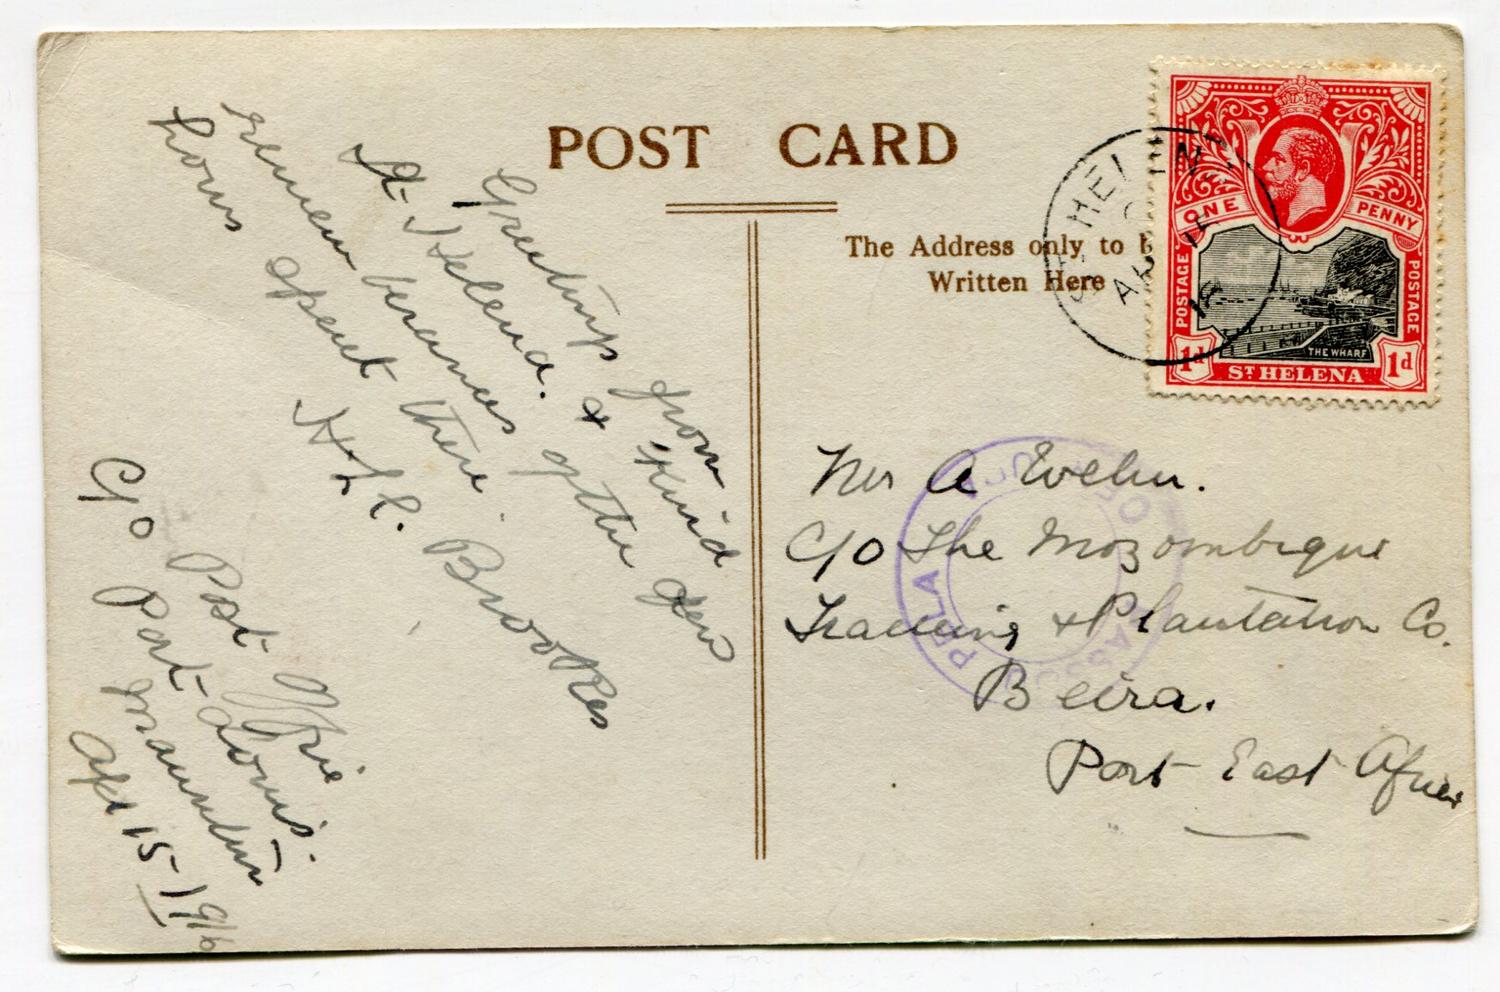 POST CARD
The Address only to b
Written Here
Greetings from
St Helena. & kind
remembrances of the few
hours spent there
H. Brookes
C/o Post Office
Port Louis.
Mauritius
Apl 15-1916
Mr A
C/o The Mozambique
Training & Plantation Co.
Beira.
Port East Africa
ONE PENNY
POSTAGE
POSTAGE
THE WHARF
1d ST HELENA 1d
ST HELEN
AP 15
16
PELA